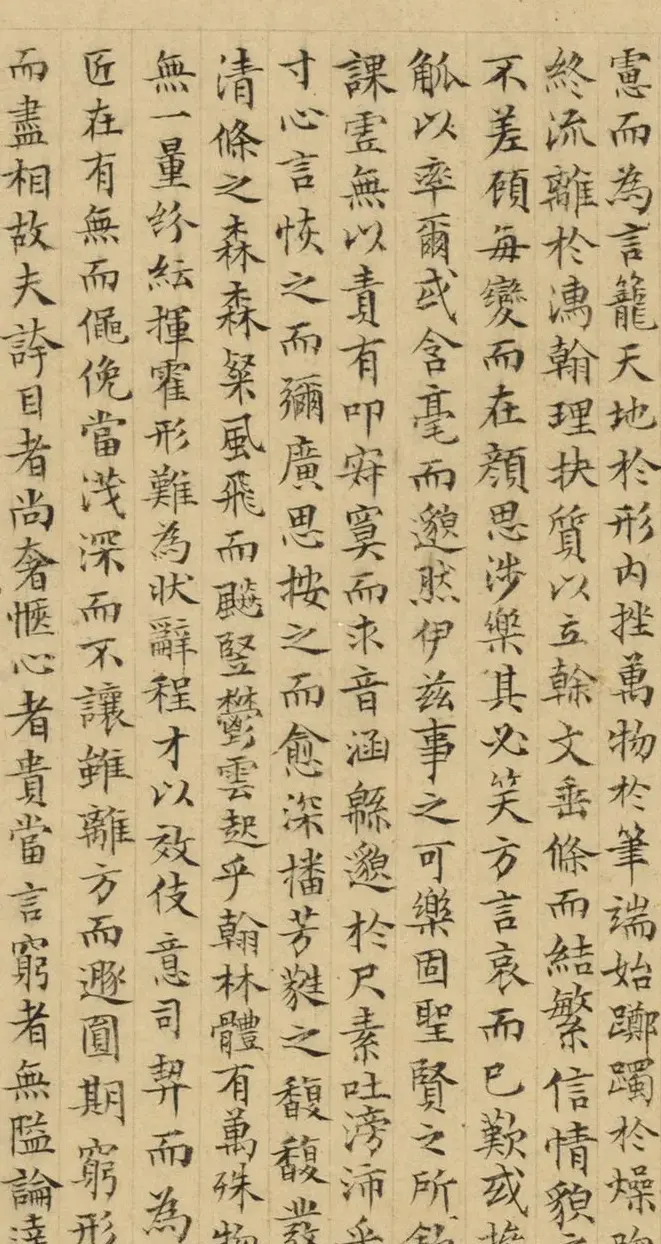 慮而為言籠天地於形內挫萬物於筆端始躑躅於燥
終流離於濡翰理扶質以立榦文垂條而結繁信情貌之
不差顧每變而在顏思涉樂其必笑方言哀而已歎或操
觚以率爾或含毫而邈然伊茲事之可樂固聖賢之所欽
課虛無以責有叩寂寞而求音涵緜邈於尺素吐滂沛乎
寸心言恢之而彌廣思按之而愈深播芳蕤之馥馥發
清條之森森粲風飛而飈豎鬱雲起乎翰林體有萬殊物
無一量紛紜揮霍形難為狀辭程才以效伎意司契而為
匠在有無而僶俛當淺深而不讓雖離方而遯圓期窮形
而盡相故夫誇目者尚奢愜心者貴當言窮者無隘論達